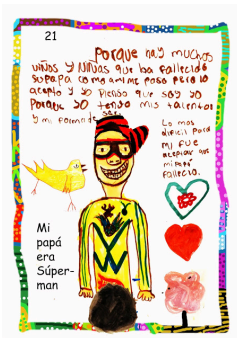 21
Porque hay muchos
niños y niñas que ha fallecido
su papá como a mi me paso pero lo
acepto y yo pienso que soy yo
Porque yo tengo mis talentos
y mi forma de ser.
Lo mas
dificil para
mi fue
aceptar que
mi papá
fallecio.
Mi
papá
era
Súper-
man